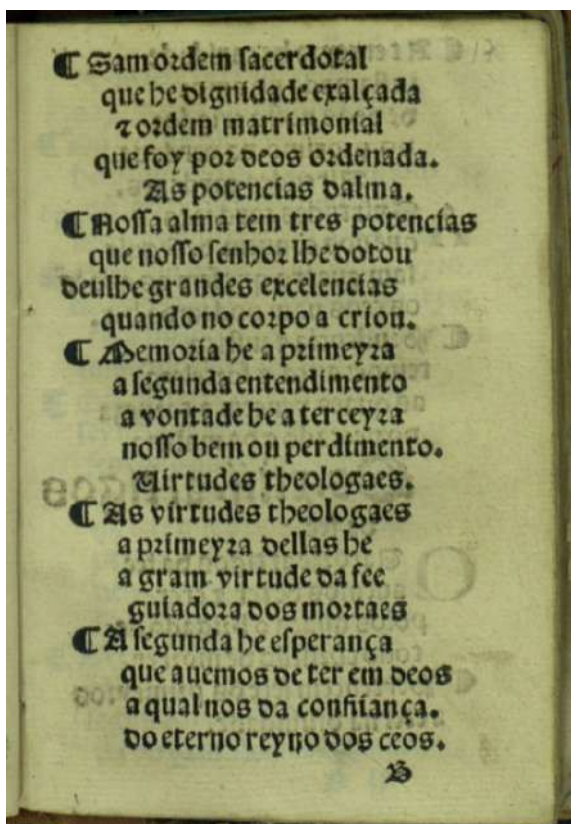 ¶ Sam ordem sacerdotal
que he dignidade exalçada
⁊ ordem matrimonial
que foy por deos ordenada.
As potencias dalma.
¶ Nossa alma tem tres potencias
que nosso senhor lhe dotou
deulhe grandes excelencias
quando no corpo a criou.
¶ Memoria he a primeyra
a segunda entendimento
a vontade he a terceyra
nosso bem ou perdimento.
Uirtudes theologaes.
¶ As virtudes theologaes
a primeyra dellas he
a gram virtude da fee
guiadora dos mortaes
¶ A segunda he esperança
que auemos de ter em deos
a qual nos da confiiança.
do eterno reyno dos ceos.
B